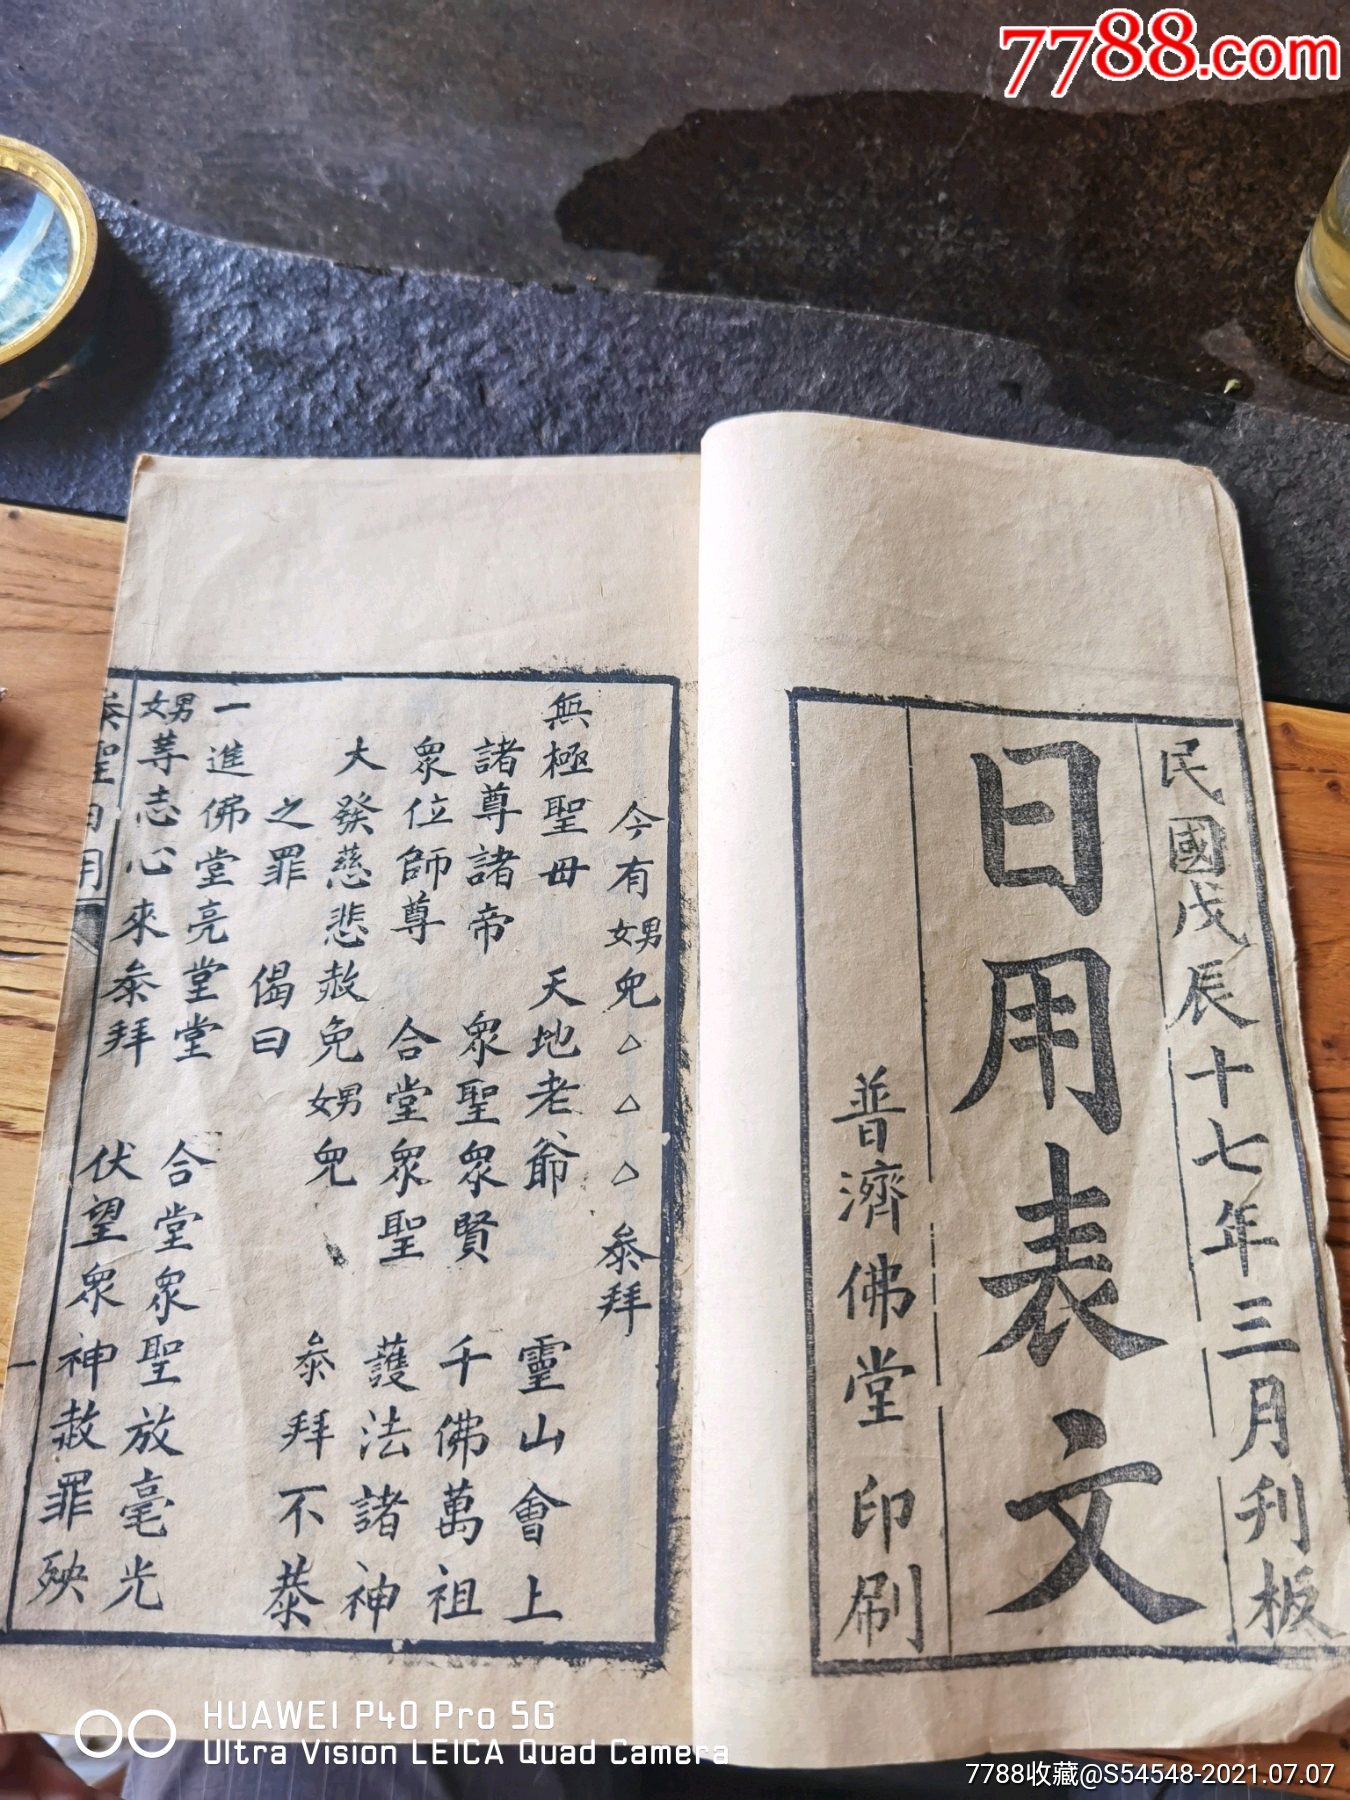 7788.com
民國戊辰十七年三月刋板
日用表文
普濟佛堂 印刷
今有男女兒△△△叅拜
無極聖毋 天地老爺 靈山會上
諸尊諸帝 衆聖衆賢 千佛萬祖
衆位師尊 合堂衆聖 護法諸神
大發慈悲赦免男女兒 叅拜不恭
之罪 偈曰
一進佛堂亮堂堂 合堂衆聖放毫光
男女等志心來叅拜 伏望衆神赦罪殃
叅聖日用
一
HUAWEI P40 Pro 5G
Ultra Vision LEICA Quad Camera
7788收藏@S54548-2021.07.07